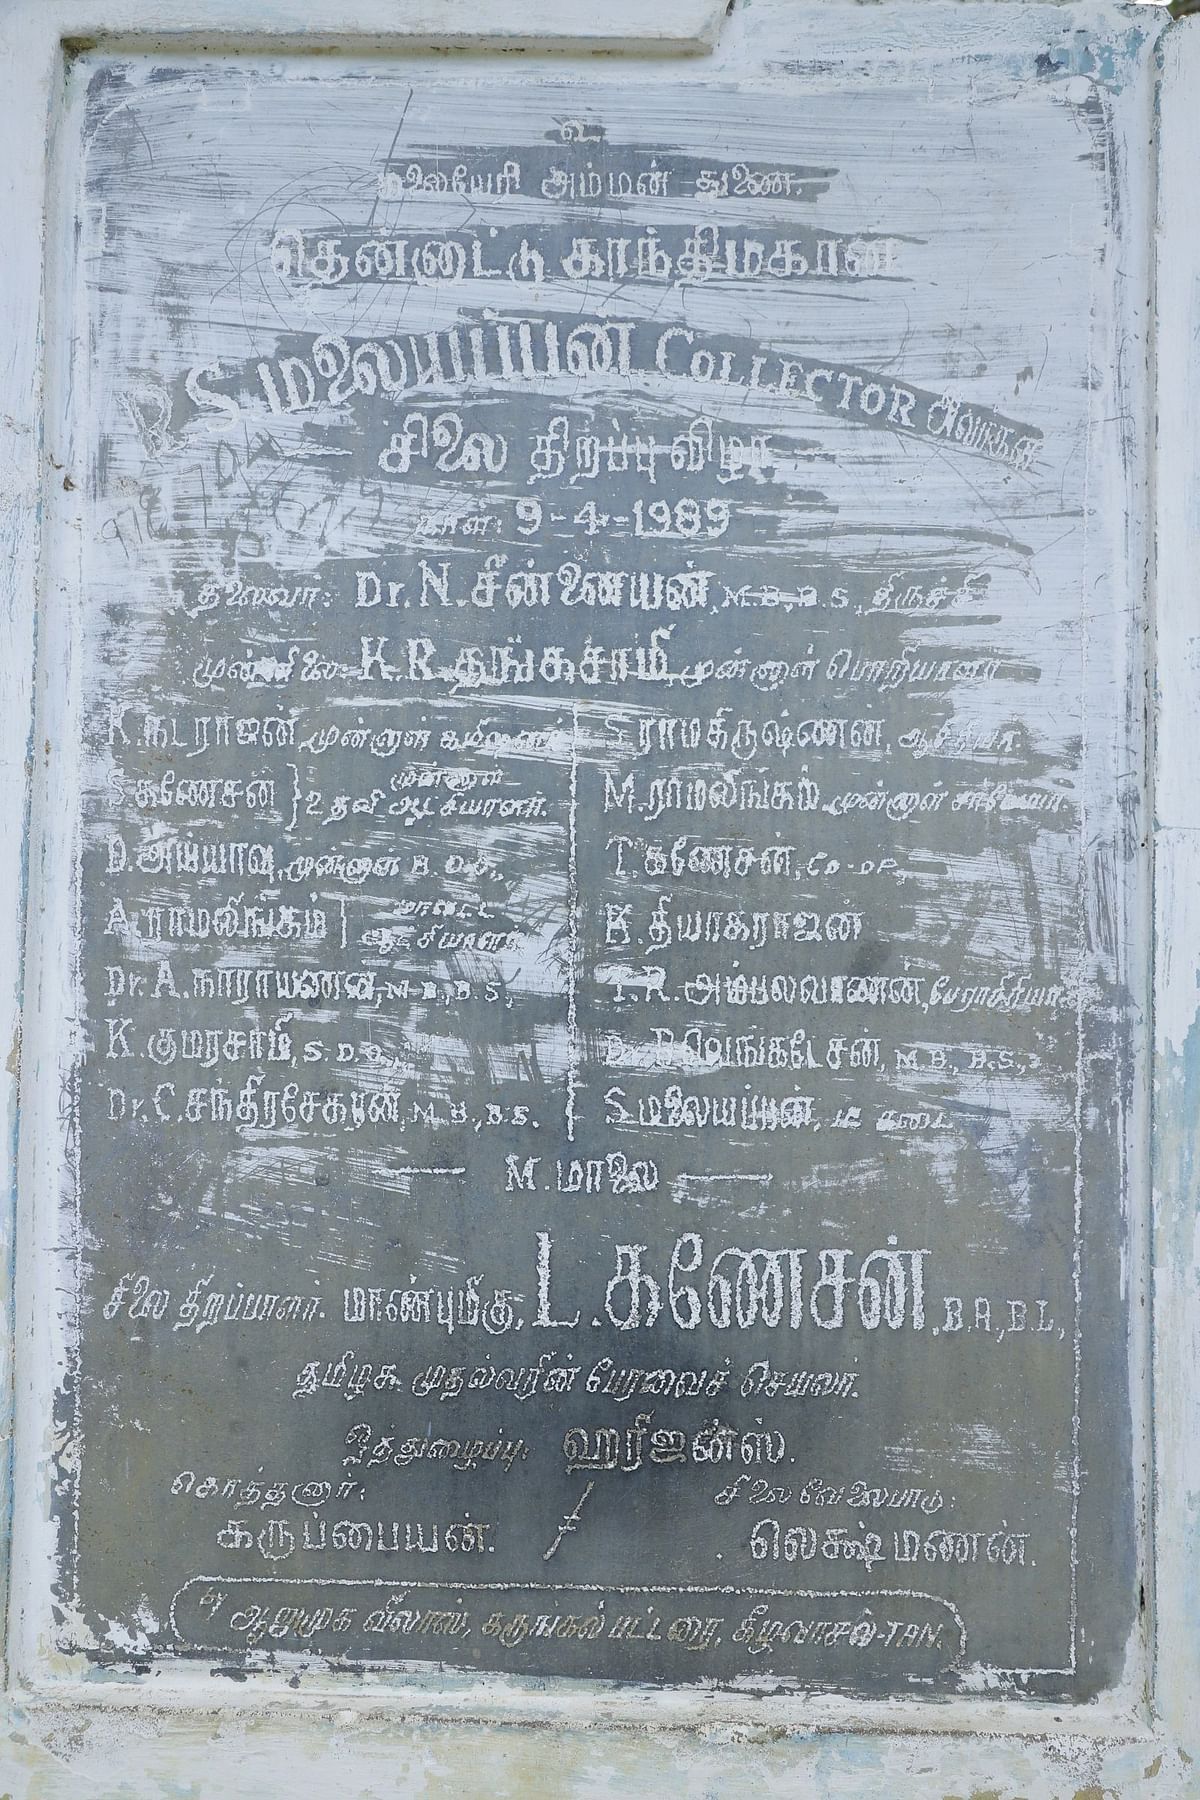 உ
அம்மன் துணை.
தென்னாட்டு காந்திமகான்
S. மலையப்பன் COLLECTOR அவர்கள்
சிலை திறப்பு விழா
நாள்: 9-4-1989
தலைவர்: Dr. N. சின்னையன், M.B., B.S, திருச்சி
முன்னிலை: K.R. தங்கசாமி முன்னாள் பொறியாளர்
K. நடராஜன் முன்னாள் கமிஷனர்
S. கணேசன் } முன்னாள் உதவி ஆட்சியாளர்.
D. அய்யாவு, முன்னாள் B.D.O.,
A. ராமலிங்கம் | மாவட்ட ஆட்சியாளர்
Dr. A. நாராயணன், M.B., B.S,
K. குமரசாமி, S.D.O.,
Dr. C. சந்திரசேகரன், M.B., B.S.
S. ராமகிருஷ்ணன், ஆசிரியர்.
M. ராமலிங்கம் முன்னாள்
T. கணேசன், CO-OP,
K. தியாகராஜன்
T.R. அம்பலவாணன், பேராசிரியர்.
Dr. R. வெங்கடேசன், M.B., B.S.,
S. மலையப்பன், டீ கடை
M. மாலை
சிலை திறப்பாளர். மாண்புமிகு, L. கணேசன், B.A, B.L,
தமிழக முதல்வரின் பேரவைச் செயலர்.
ஒத்துழைப்பு: ஹரிஜன்ஸ்.
கொத்தனார்: / சிலை வேலைபாடு:
கருப்பையன். / லெக்ஷ்மணன்.
by ஆறுமுக விலாஸ், கருங்கல் பட்டரை, கீழவாசல்-TAN.